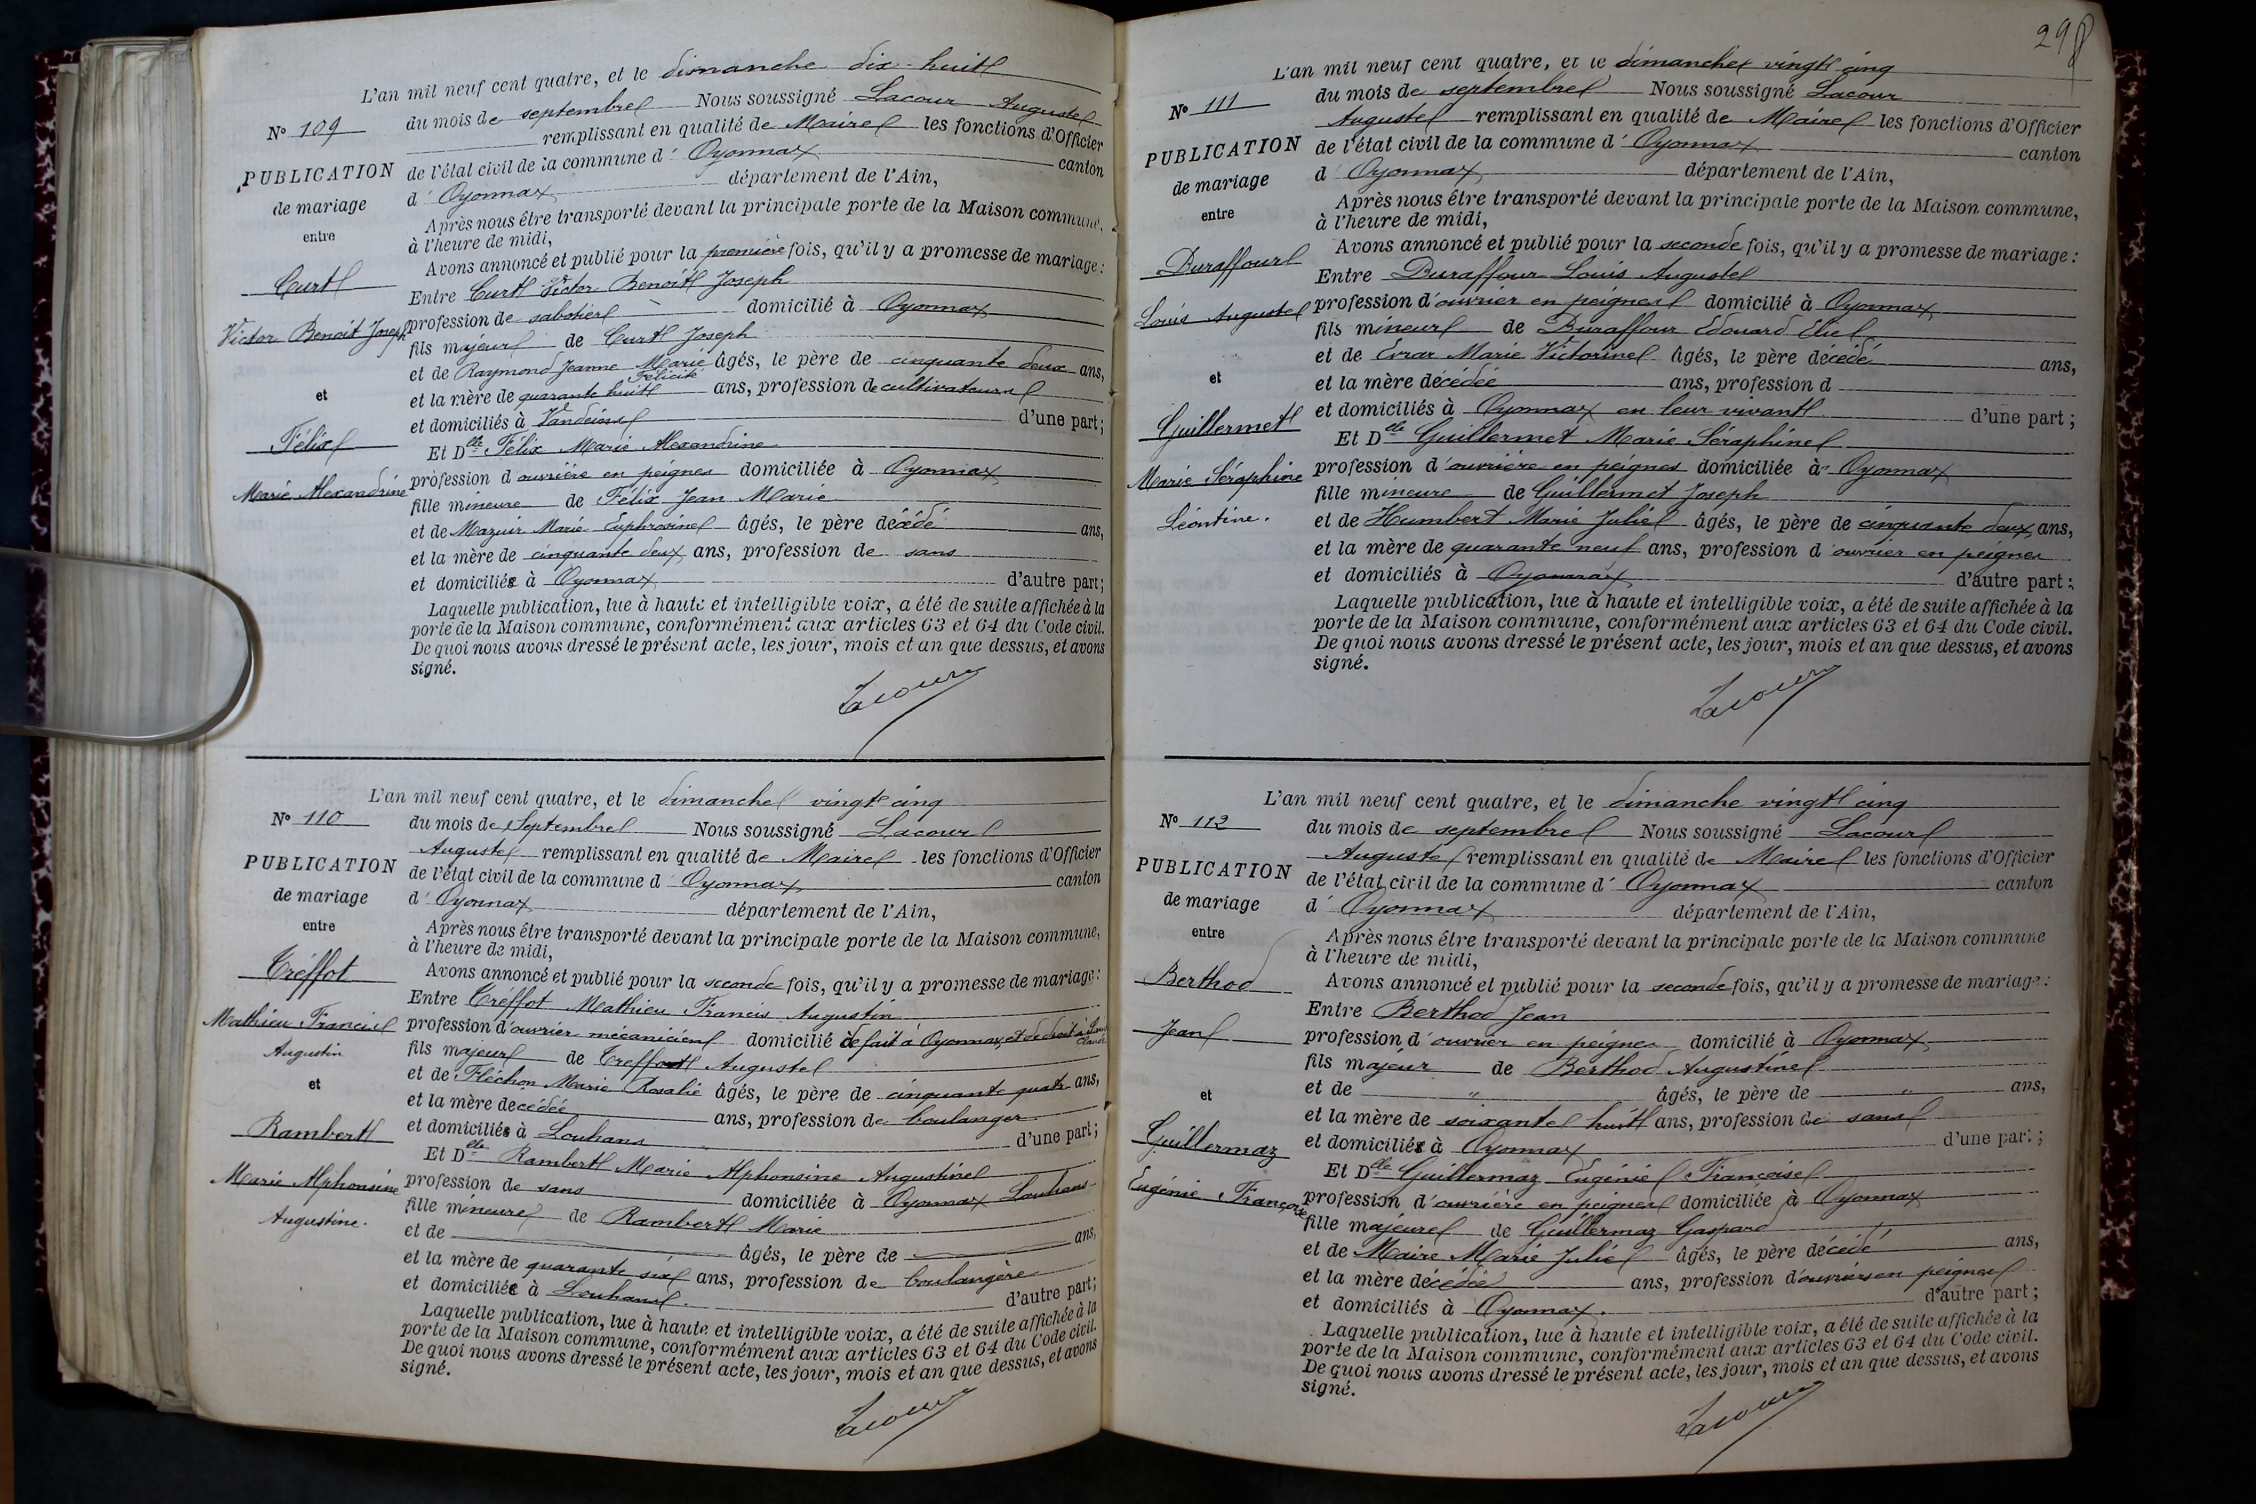 L'an mil neuf cent quatre, et le dimanche dix-huit
du mois de septembre Nous soussigné Lacour Auguste
remplissant en qualité de Maire les fonctions d'Officier
de l'état civil de la commune d' Oyonnax canton
d' Oyonnax département de l'Ain,
Après nous être transporté devant la principale porte de la Maison commune,
à l'heure de midi,
Avons annoncé et publié pour la première fois, qu'il y a promesse de mariage :
Entre Curt Victor Benoît Joseph
profession de sabotier domicilié à Oyonnax
fils majeur de Curt Joseph
et de Raymond Jeanne Marie Félicité âgés, le père de cinquante deux ans,
et la mère de quarante huit ans, profession de cultivateurs
et domiciliés à d'une part ;
Et Dlle Félix Marie Alexandrine
profession d'ouvrière en peignes domiciliée à Oyonnax
fille mineure de Félix Jean Marie
et de Mazuir Marie Euphrosine âgés, le père décédé ans,
et la mère de cinquante deux ans, profession de sans
et domiciliée à Oyonnax d'autre part ;
Laquelle publication, lue à haute et intelligible voix, a été de suite affichée à la
porte de la Maison commune, conformément aux articles 63 et 64 du Code civil.
De quoi nous avons dressé le présent acte, les jour, mois et an que dessus, et avons
signé.
Lacour
N° 109
PUBLICATION
de mariage
entre
Curt
Victor Benoit Joseph
et
Félix
Marie Alexandrine
L'an mil neuf cent quatre, et le dimanche vingt cinq
du mois de Septembre Nous soussigné Lacour
Auguste remplissant en qualité de Maire les fonctions d'Officier
de l'état civil de la commune d' Oyonnax canton
d' Oyonnax département de l'Ain,
Après nous être transporté devant la principale porte de la Maison commune,
à l'heure de midi,
Avons annoncé et publié pour la seconde fois, qu'il y a promesse de mariage :
Entre Tréffot Mathieu Francis Augustin
profession d'ouvrier mécanicien domicilié de fait à Oyonnax et de droit à
fils majeur de Treffot Auguste
et de Fléchon Marie Rosalie âgés, le père de cinquante quatre ans,
et la mère decédée ans, profession de boulanger
et domiciliés à Louhans d'une part ;
Et Dlle Rambert Marie Alphonsine Augustine
profession de sans domiciliée à Oyonnax Louhans
fille mineure de Rambert Marie
et de âgés, le père de ans,
et la mère de quarante six ans, profession de boulangère
et domiciliée à Louhans. d'autre part ;
Laquelle publication, lue à haute et intelligible voix, a été de suite affichée à la
porte de la Maison commune, conformément aux articles 63 et 64 du Code civil.
De quoi nous avons dressé le présent acte, les jour, mois et an que dessus, et avons
signé.
Lacour
N° 110
PUBLICATION
de mariage
entre
Tréffot
Mathieu Francis
Augustin
et
Rambert
Marie Alphonsine
Augustine.
298
L'an mil neuf cent quatre, et le dimanche vingt cinq
du mois de septembre Nous soussigné Lacour
Auguste remplissant en qualité de Maire les fonctions d'Officier
de l'état civil de la commune d' Oyonnax canton
d' Oyonnax département de l'Ain,
Après nous être transporté devant la principale porte de la Maison commune,
à l'heure de midi,
Avons annoncé et publié pour la seconde fois, qu'il y a promesse de mariage :
Entre Duraffour Louis Auguste
profession d'ouvrier en peignes domicilié à Oyonnax
fils mineur de Duraffour Edouard Elie
et de Evrar Marie Victorine âgés, le père décédé ans,
et la mère décédée ans, profession d
et domiciliés à Oyonnax en leur vivant d'une part ;
Et Dlle Guillermet Marie Séraphine
profession d'ouvrière en peignes domiciliée à Oyonnax
fille mineure de Guillermet Joseph
et de Humbert Marie Julie âgés, le père de cinquante deux ans,
et la mère de quarante neuf ans, profession d'ouvrier en peignes
et domiciliés à Oyonnax d'autre part ;
Laquelle publication, lue à haute et intelligible voix, a été de suite affichée à la
porte de la Maison commune, conformément aux articles 63 et 64 du Code civil.
De quoi nous avons dressé le présent acte, les jour, mois et an que dessus, et avons
signé.
Lacour
N° 111
PUBLICATION
de mariage
entre
Duraffour
Louis Auguste
et
Guillermet
Marie Séraphine
Léontine.
L'an mil neuf cent quatre, et le dimanche vingt cinq
du mois de septembre Nous soussigné Lacour
Auguste remplissant en qualité de Maire les fonctions d'Officier
de l'état civil de la commune d' Oyonnax canton
d' Oyonnax département de l'Ain,
Après nous être transporté devant la principale porte de la Maison commune
à l'heure de midi,
Avons annoncé et publié pour la seconde fois, qu'il y a promesse de mariage :
Entre Berthod Jean
profession d'ouvrier en peignes domicilié à Oyonnax
fils majeur de Berthod Augustine
et de " âgés, le père de " ans,
et la mère de soixante huit ans, profession de sans
et domiciliée à Oyonnax d'une part ;
Et Dlle Guillermaz Eugénie Françoise
profession d'ouvrière en peignes domiciliée à Oyonnax
fille majeure de Guillermaz Gaspard
et de Maire Marie Julie âgés, le père décédé ans,
et la mère décédée ans, profession d'ouvriers en peignes
et domiciliés à Oyonnax. d'autre part ;
Laquelle publication, lue à haute et intelligible voix, a été de suite affichée à la
porte de la Maison commune, conformément aux articles 63 et 64 du Code civil.
De quoi nous avons dressé le présent acte, les jour, mois et an que dessus, et avons
signé.
Lacour
N° 112
PUBLICATION
de mariage
entre
Berthod
Jean
et
Guillermaz
Eugénie Françoise